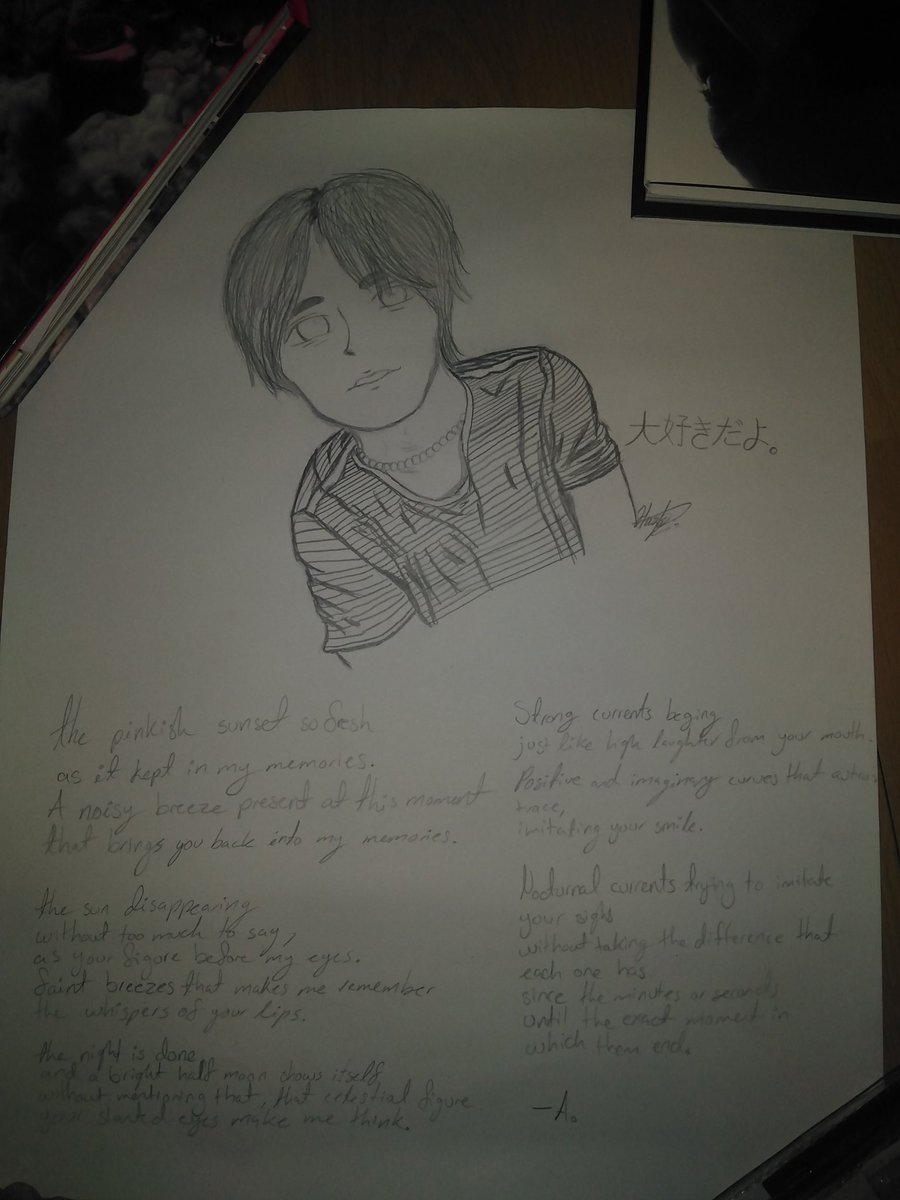 大好きだよ。
the pinkish sunset so fresh
as it kept in my memories.
A noisy breeze present at this moment
that brings you back into my memories.
the sun disappearing
without too much to say,
as your figure before my eyes.
faint breezes that makes me remember
the whispers of your lips.
the night is done,
and a bright half moon shows itself
without mentioning that, that celestial figure
your slanted eyes make me think.
Strong currents beging
just like high laughter from your mouth.
Positive and imaginary curves that
trace,
imitating your smile.
Nocturnal currents trying to imitate
your sighs
without taking the difference that
each one has
since the minutes or seconds
until the exact moment in
which them end.
-A.